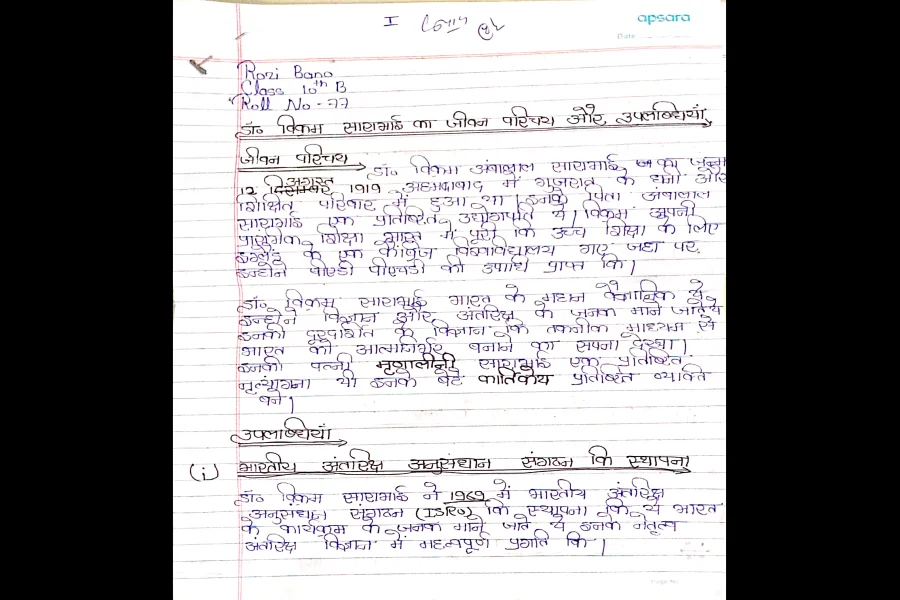 I
apsara
Date
Rozi Bano
Class 10th B
Roll No - 77
डॉ॰ विक्रम साराभाई का जीवन परिचय और, उपलब्धियाँ
जीवन परिचय
डॉ॰ विक्रम अंबालाल साराभाई का जन्म
अगस्त
12 दिसम्बर 1919 अहमदाबाद में गुजरात के धनी और
शिक्षित परिवार में हुआ था। इनके पिता अंबालाल
साराभाई एक प्रतिष्ठित उद्योगपति थे। विक्रम अपनी
प्रारंभिक शिक्षा भारत में पूरी कि उच्च शिक्षा के लिए
इंग्लैंड के एक कैंब्रिज विश्वविद्यालय गए जहा पर
इन्होंने पीएडी पीएचडी की उपाधि प्राप्त कि।
डॉ॰ विक्रम साराभाई भारत के महान वैज्ञानिक थे
इन्होंने विज्ञान और अंतरिक्ष के जनक माने जाते थे
इनकी दूरदर्शित के विज्ञान के तकनीक माध्यम से
भारत को आत्मनिर्भर बनाने का सपना देखा।
इनकी पत्नी मृणालीनी साराभाई एक प्रतिष्ठित
नृत्यांगना थी इनके बेटे कार्तिकेय प्रतिष्ठित व्यक्ति
बने।
उपलब्धियाँ
(i) भारतीय अंतरिक्ष अनुसंधान संगठन कि स्थापना
डॉ॰ विक्रम साराभाई ने 1969 में भारतीय अंतरिक्ष
अनुसंधान संगठन (ISRO) कि स्थापना कि ये भारत
के कार्यक्रम के जनक माने जाते थे इनके नेतृत्व
अंतरिक्ष विज्ञान में महत्वपूर्ण प्रगति कि।
Page No.